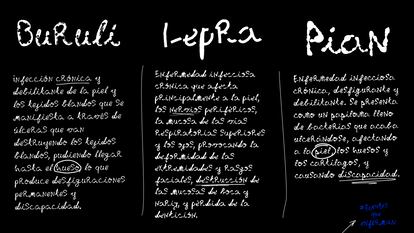 Buruli
infección crónica y
debilitante de la piel y
los tejidos blandos que se
manifiesta a través de
úlceras que van
destruyendo los tejidos
blandos, pudiendo llegar
hasta el hueso lo que
produce desfiguraciones
permanentes y
discapacidad.
Lepra
Enfermedad infecciosa
crónica que afecta
principalmente a la piel,
los nervios periféricos,
la mucosa de las vías
respiratorias superiores
y los ojos, provocando la
deformidad de las
extremidades y rasgos
faciales, destrucción de
las mucosas de boca y
nariz, y pérdida de la
dentición.
Pian
Enfermedad infecciosa
crónica, desfigurante y
debilitante. Se presenta
como un papiloma lleno
de bacterias que acaba
ulcerándose, afectando
a la piel, los huesos y
los cartílagos, y
causando discapacidad.
que
enferman